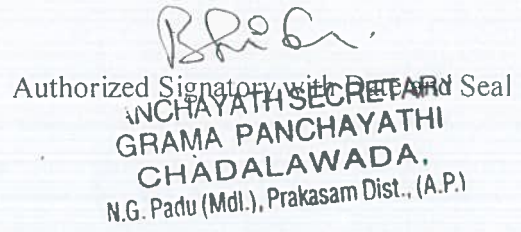 Authorized Signatory with Date and Seal
ANCHAYATH SECRETARY
GRAMA PANCHAYATHI
CHADALAWADA.
N.G. Padu (Mdl.), Prakasam Dist., (A.P.)